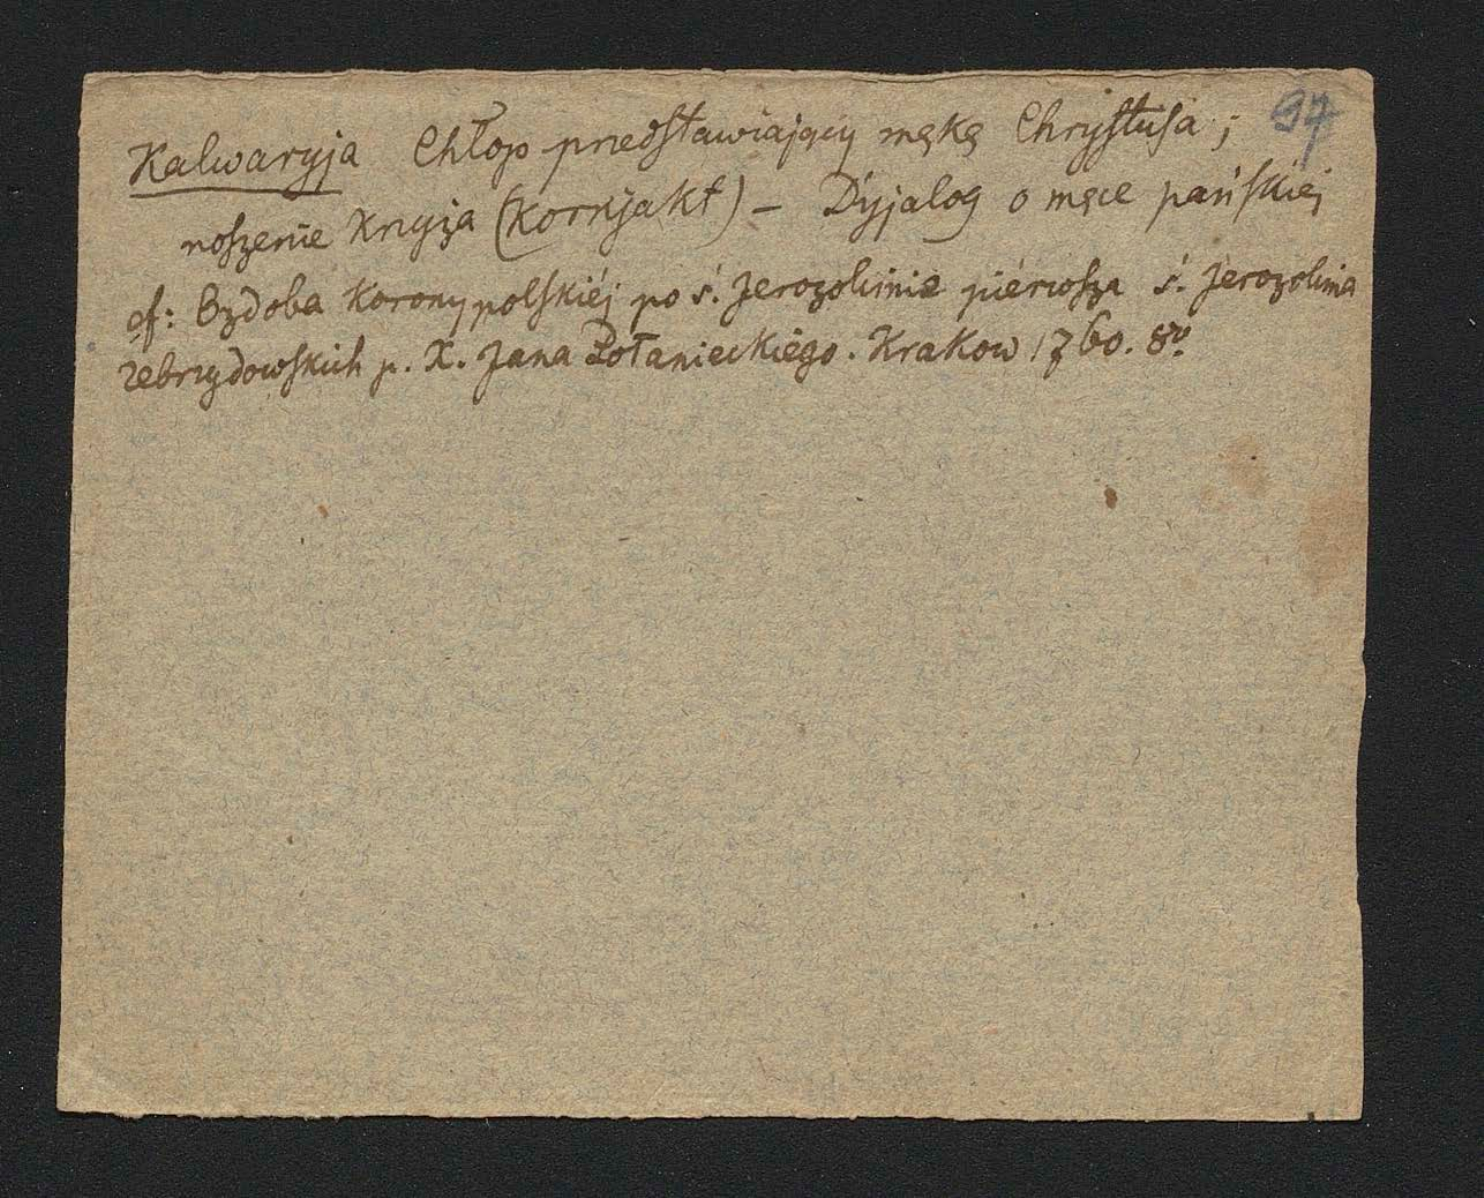 97
Kalwaryja Chłop przedstawiający mękę Chrystusa;
noszenie Krzyża (Kornjakt) – Dyjalog o męce pańskiej
cf: Ozdoba Korony polskiéj po ś. Jerozolimie piérwsza ś. Jerozolima
Zebrzydowskich p. X. Jana Połanieckiégo. Krakow 1760. 8vo